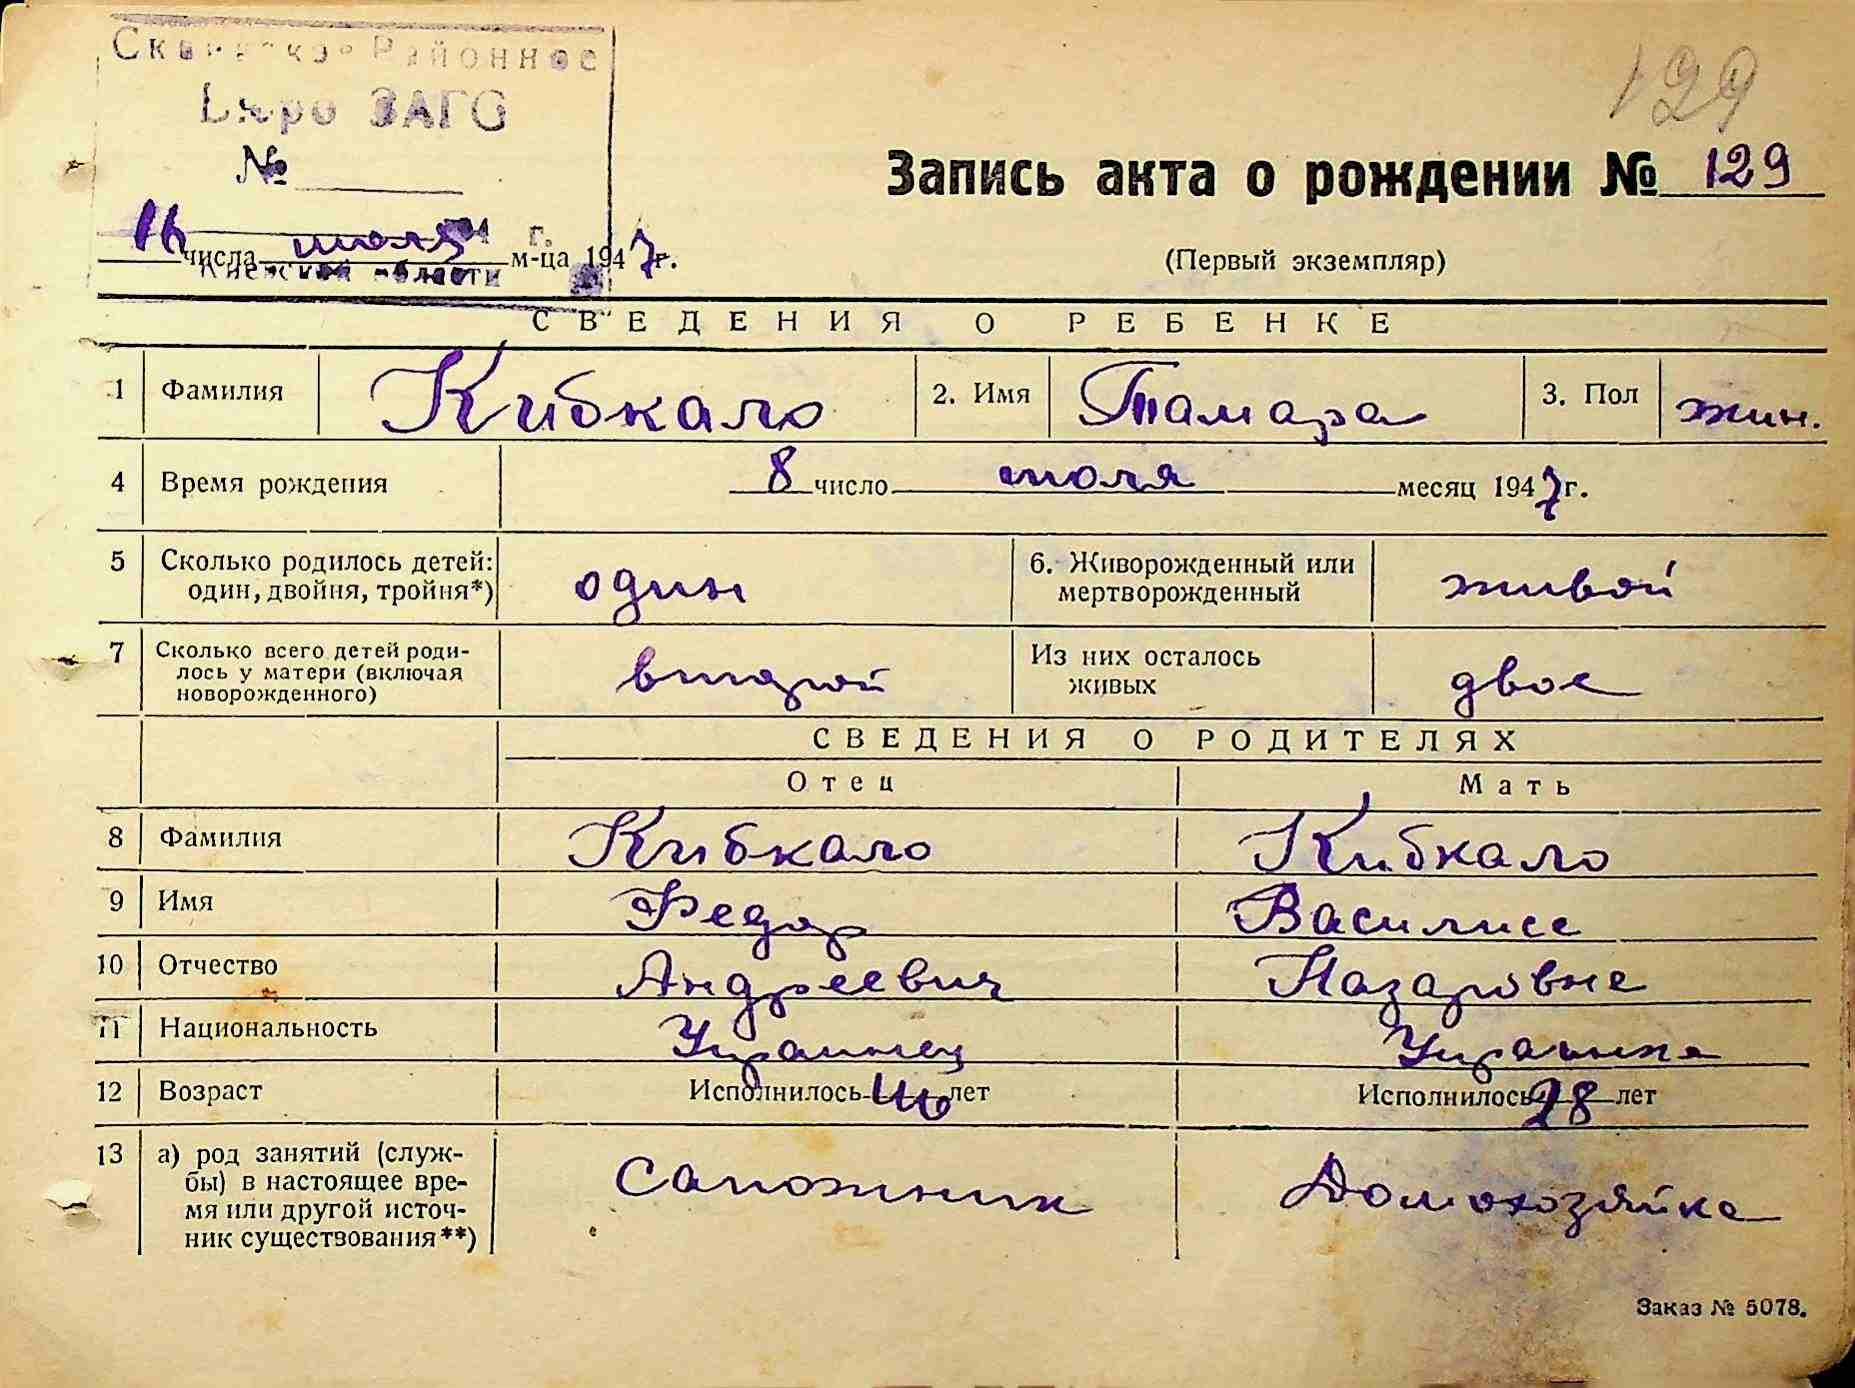 Районное
Бюро ЗАГС
129
№
Запись акта о рождении № 129
числа июля м-ца 1947 г.
(Первый экземпляр)
Киевской области
СВЕДЕНИЯ О РЕБЕНКЕ
1 Фамилия Кибкало 2. Имя Тамара 3. Пол жин.
4 Время рождения 8 число июля месяц 1947 г.
5 Сколько родилось детей: один, двойня, тройня*) один 6. Живорожденный или мертворожденный живой
7 Сколько всего детей родилось у матери (включая новорожденного) второй Из них осталось живых двое
СВЕДЕНИЯ О РОДИТЕЛЯХ
Отец Мать
8 Фамилия Кибкало Кибкало
9 Имя Федор Василисе
10 Отчество Андреевич Назаровне
11 Национальность Украинец Украинка
12 Возраст Исполнилось лет Исполнилось 28 лет
13 а) род занятий (службы) в настоящее время или другой источник существования**) сапожник Домохозяйка
Заказ № 5078.